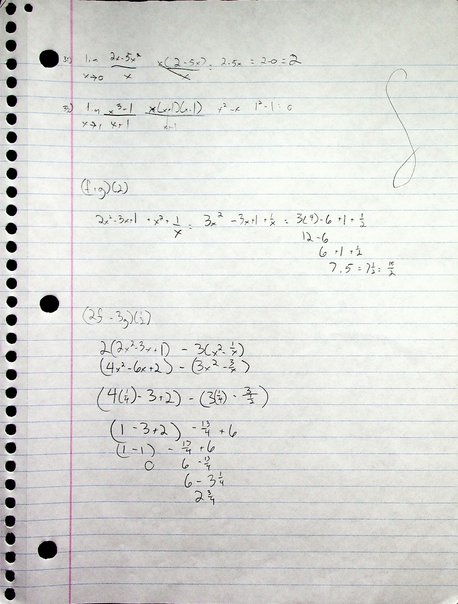 lim x→0 (2x-5x²)/x x(2-5x)/x = 2-5x = 2-0 = 2
lim x→1 (x³-1)/(x+1) x(x+1)(x-1)/(x+1) x²-x 1²-1 = 0
(f+g)(2)
2x²-3x+1 + x² + 1/x = 3x² - 3x+1 + 1/x = 3(4)-6+1+1/2
12-6
6+1+1/2
7.5 = 7 1/2 = 15/2
(2f - 3g)(1/2)
2(2x²-3x+1) - 3(x²-1/x)
(4x²-6x+2) - (3x²-3/x)
(4(1/4)-3+2) - (3(1/4) - 3/.5)
(1-3+2) - 13/4 + 6
(1-1) - 13/4 + 6
0 6 - 13/4
6 - 3 1/4
2 3/4